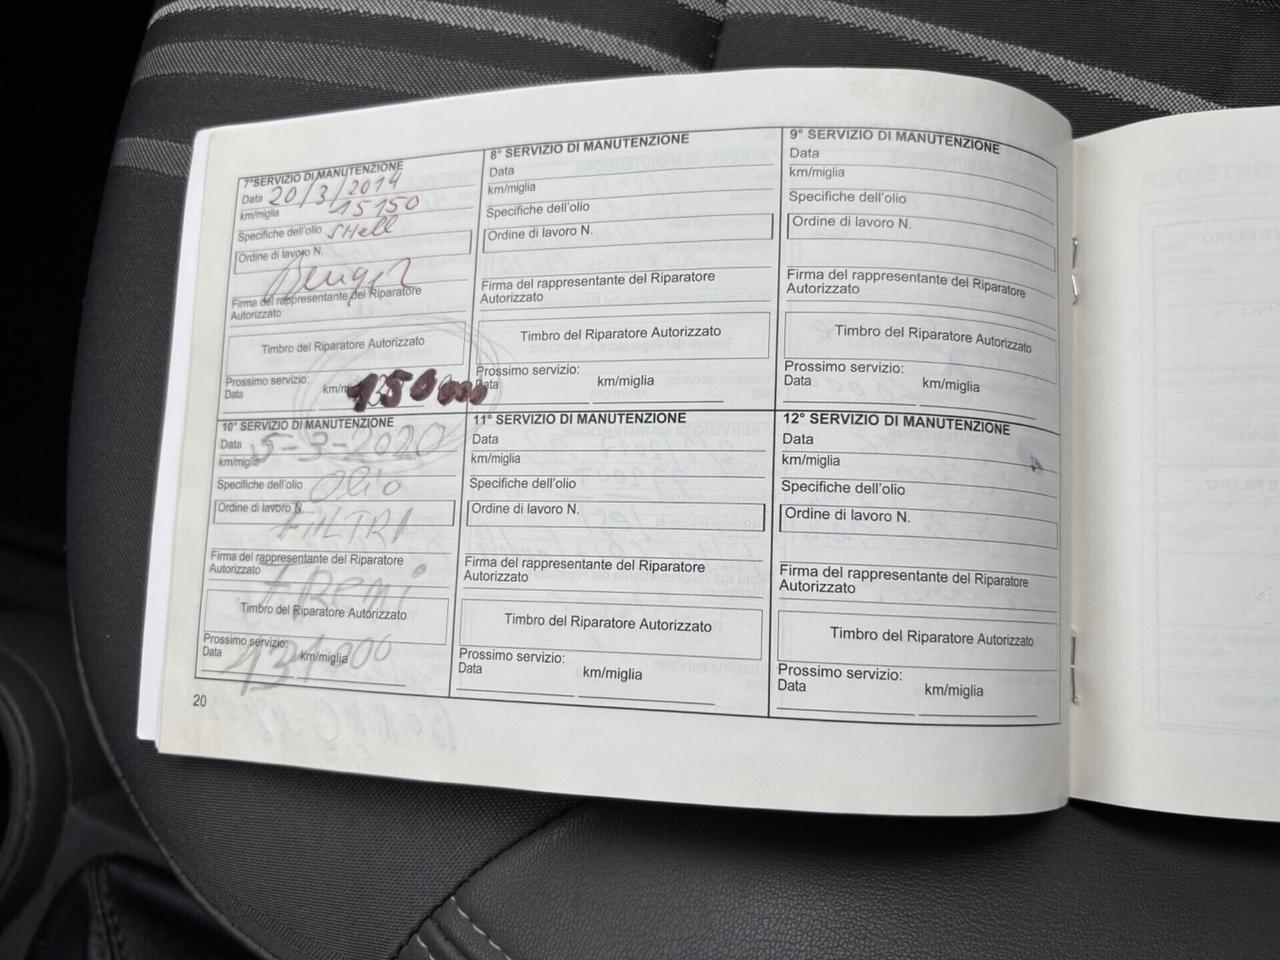 7° SERVIZIO DI MANUTENZIONE
Data 20/3/2014
km/miglia 15150
Specifiche dell'olio SHell
Ordine di lavoro N.
Firma del rappresentante del Riparatore
Autorizzato
Timbro del Riparatore Autorizzato
Prossimo servizio:
Data km/miglia
8° SERVIZIO DI MANUTENZIONE
Data
km/miglia
Specifiche dell'olio
Ordine di lavoro N.
Firma del rappresentante del Riparatore
Autorizzato
Timbro del Riparatore Autorizzato
Prossimo servizio:
Data km/miglia
9° SERVIZIO DI MANUTENZIONE
Data
km/miglia
Specifiche dell'olio
Ordine di lavoro N.
Firma del rappresentante del Riparatore
Autorizzato
Timbro del Riparatore Autorizzato
Prossimo servizio:
Data km/miglia
10° SERVIZIO DI MANUTENZIONE
Data 5-3-2020
km/miglia
Specifiche dell'olio Olio
Ordine di lavoro N.
FILTRI
Firma del rappresentante del Riparatore
Autorizzato FRENI
Timbro del Riparatore Autorizzato
Prossimo servizio:
Data km/miglia
11° SERVIZIO DI MANUTENZIONE
Data
km/miglia
Specifiche dell'olio
Ordine di lavoro N.
Firma del rappresentante del Riparatore
Autorizzato
Timbro del Riparatore Autorizzato
Prossimo servizio:
Data km/miglia
12° SERVIZIO DI MANUTENZIONE
Data
km/miglia
Specifiche dell'olio
Ordine di lavoro N.
Firma del rappresentante del Riparatore
Autorizzato
Timbro del Riparatore Autorizzato
Prossimo servizio:
Data km/miglia
20